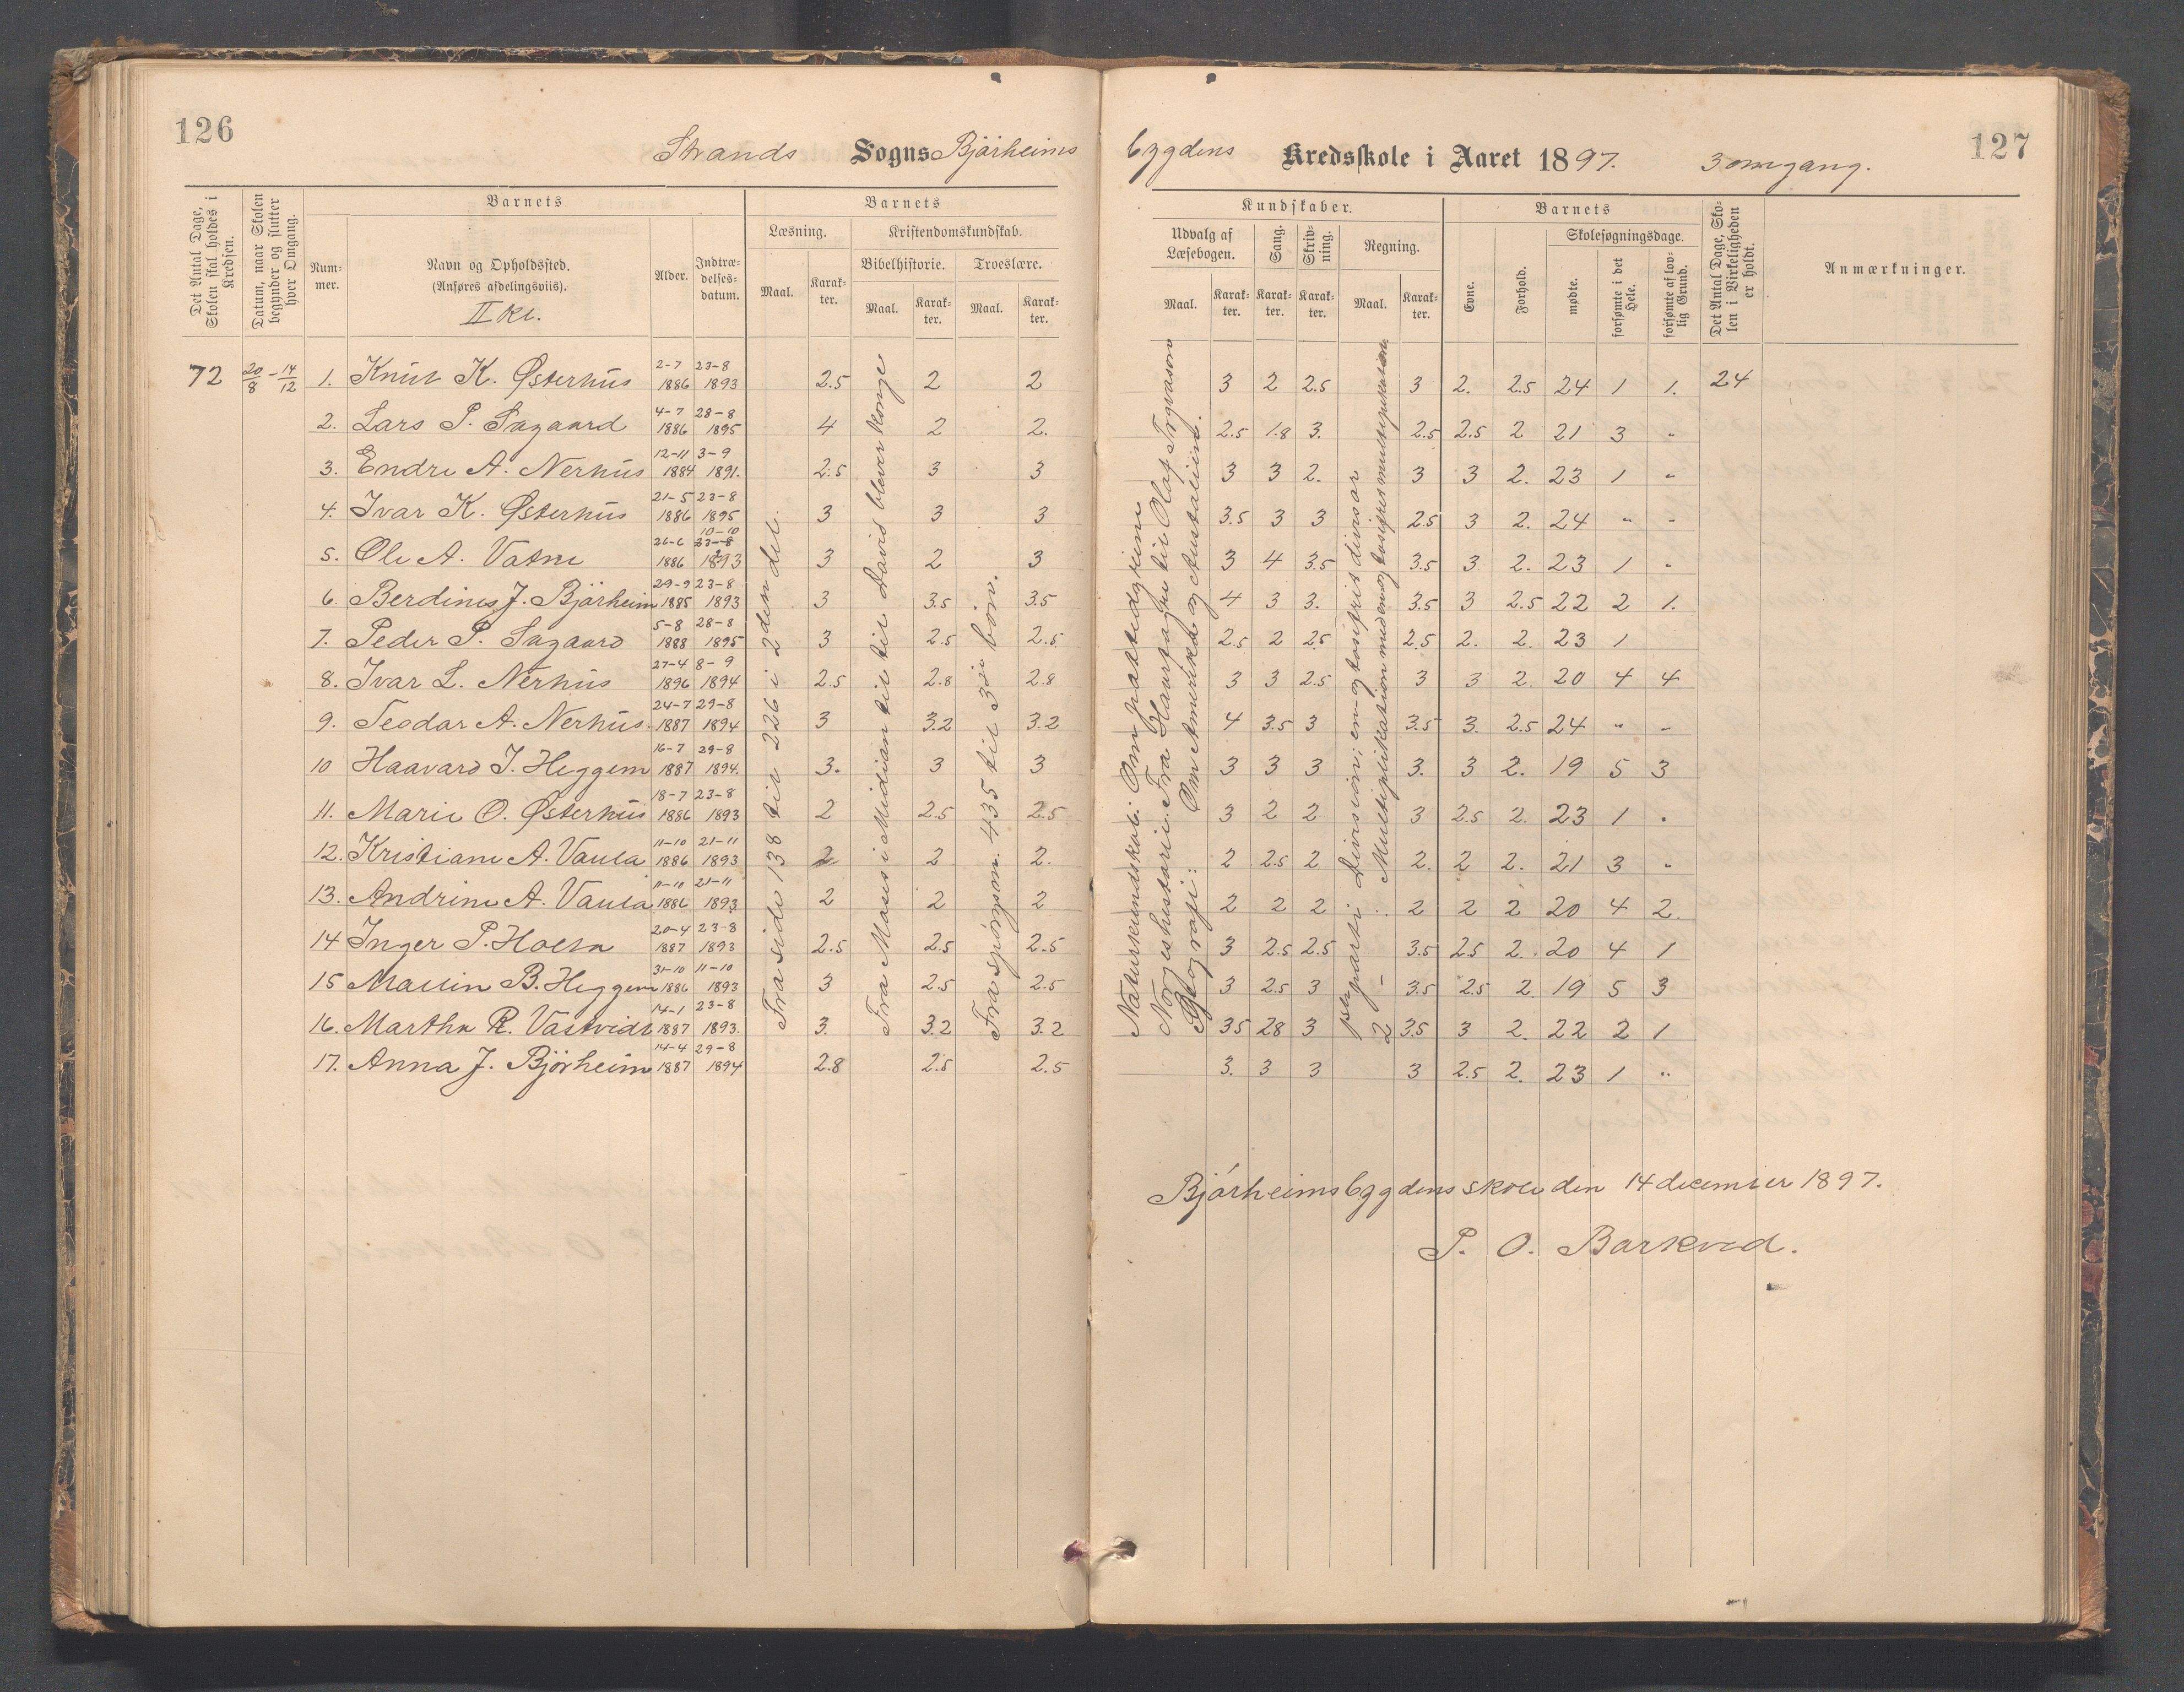 126
127
Strands Sogns Bjårheims bygdens Kredsskole i Aaret 1897. 3 omgang.
Det Antal Dage, Skolen skal holdes i Kredsen.
Datum, naar Skolen begynder og slutter hver Omgang.
Barnets
Num-mer.
Navn og Opholdssted.
(Anføres afdelingsviis).
II kl.
Alder.
Indtræ-delses-datum.
Barnets
Læsning.
Maal.
Karak-ter.
Kristendomskundskab.
Bibelhistorie.
Maal.
Karak-ter.
Troeslære.
Maal.
Karak-ter.
Kundskaber.
Udvalg af Læsebogen.
Maal.
Karak-ter.
Sang.
Karak-ter.
Skriv-ning.
Karak-ter.
Regning.
Maal.
Karak-ter.
Barnets
Evne.
Forhold.
Skolesøgningsdage.
mødte.
forsømte i det Hele.
forsømte af lov-lig Grund.
Det Antal Dage, Sko-len i Virkeligheden er holdt.
Anmærkninger.
72 20/8 - 14/12 1. Knut K. Østerhus 2-7 1886 23-8 1893 2.5 2 2 3 2 2.5 3 2. 2.5 24 1 1. 24
2. Lars P. Sagaard 4-7 1886 28-8 1895 4 2 2. 2.5 1.8 3. 2.5 2.5 2 21 3 "
3. Endre A. Nerhus 12-11 1884 3-9 1891. 2.5 3 3 3 3 2. 3 3 2. 23 1 "
4. Ivar K. Østerhus 21-5 1886 23-8 1895 3 3 3 3.5 3 3 2.5 3 2. 24 " "
5. Ole A. Vatne 26-6 1886 10-10 23-8 1893 3 2 3 3 4 3.5 3.5 3 2. 23 1 "
6. Berdines J. Bjårheim 29-9 1885 23-8 1893 3 3.5 3.5 4 3 3. 3.5 3 2.5 22 2 1.
7. Peder P. Sagaard 5-8 1888 28-8 1895 3 2.5 2.5 2.5 2 2.5 2.5 2. 2. 23 1
8. Ivar L. Nerhus 27-4 1896 8-9 1894 2.5 2.8 2.8 3 3 2.5 3 3 2. 20 4 4
9. Teodar A. Nerhus. 24-7 1887 29-8 1894 3 3.2 3.2 4 3.5 3 3.5 3. 2.5 24 " "
10 Haavard J. Heggem 16-7 1887 29-8 1894. 3. 3 3 3 3 3 3. 3 2. 19 5 3
11. Marie O. Østerhus 18-7 1886 23-8 1893 2 2.5 2.5 3 2 2 3 2.5 2. 23 1 "
12. Kristiane A. Vaula 11-10 1886 21-11 1893 2 2 2. 2 2.5 2 2. 2 2. 21 3 "
13. Andrine A. Vaula 11-10 1886 21-11 1893 2 2 2 2 2 2 2 2 2 20 4 2.
14 Inger P. Holta 20-4 1887 23-8 1893 2.5 2.5 2.5 3 2.5 2.5 3.5 2.5 2. 20 4 1
15 Mallin B. Heggem 31-10 1886 11-10 1893 3 2.5 2.5 3 2.5 3 3.5 2.5 2 19 5 3
16. Martha R. Vastveidt 14-1 1887 23-8 1893. 3. 3.2 3.2 3.5 2.8 3 3.5 3 2. 22 2 1
17. Anna J. Bjørheim 14-4 1887 29-8 1894 2.8 2.5 2.5 3. 3 3 3 2.5 2. 23 1 "
Fra side 138 til 226 i 2den del.
Fra Moses i Midian til til David blever konge
Fra spörgsm. 435 til 3die bön.
Naturkundskab: Om pattedyrene
Norges historie. Fra Haarfagre til Olaf Trygvason
Geografi: Om Amerika og Australien.
2 parti Division; en- og tosifret divisor
Multiplikation med en og tosifres multiplikation
Bjårheimsbygdens skole den 14 december 1897.
P. O. Barkved.